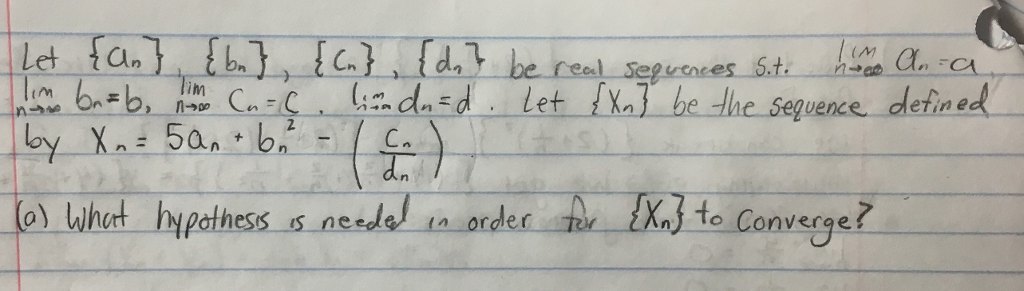 Let {an}, {bn}, {Cn}, {dn} be real sequences s.t. lim n→∞ an=a
lim n→∞ bn=b, lim n→∞ Cn=C. lim n→∞ dn=d. Let {Xn} be the sequence defined
by Xn= 5an + bn² - (Cn/dn)
(a) What hypothesis is needed in order for {Xn} to converge?